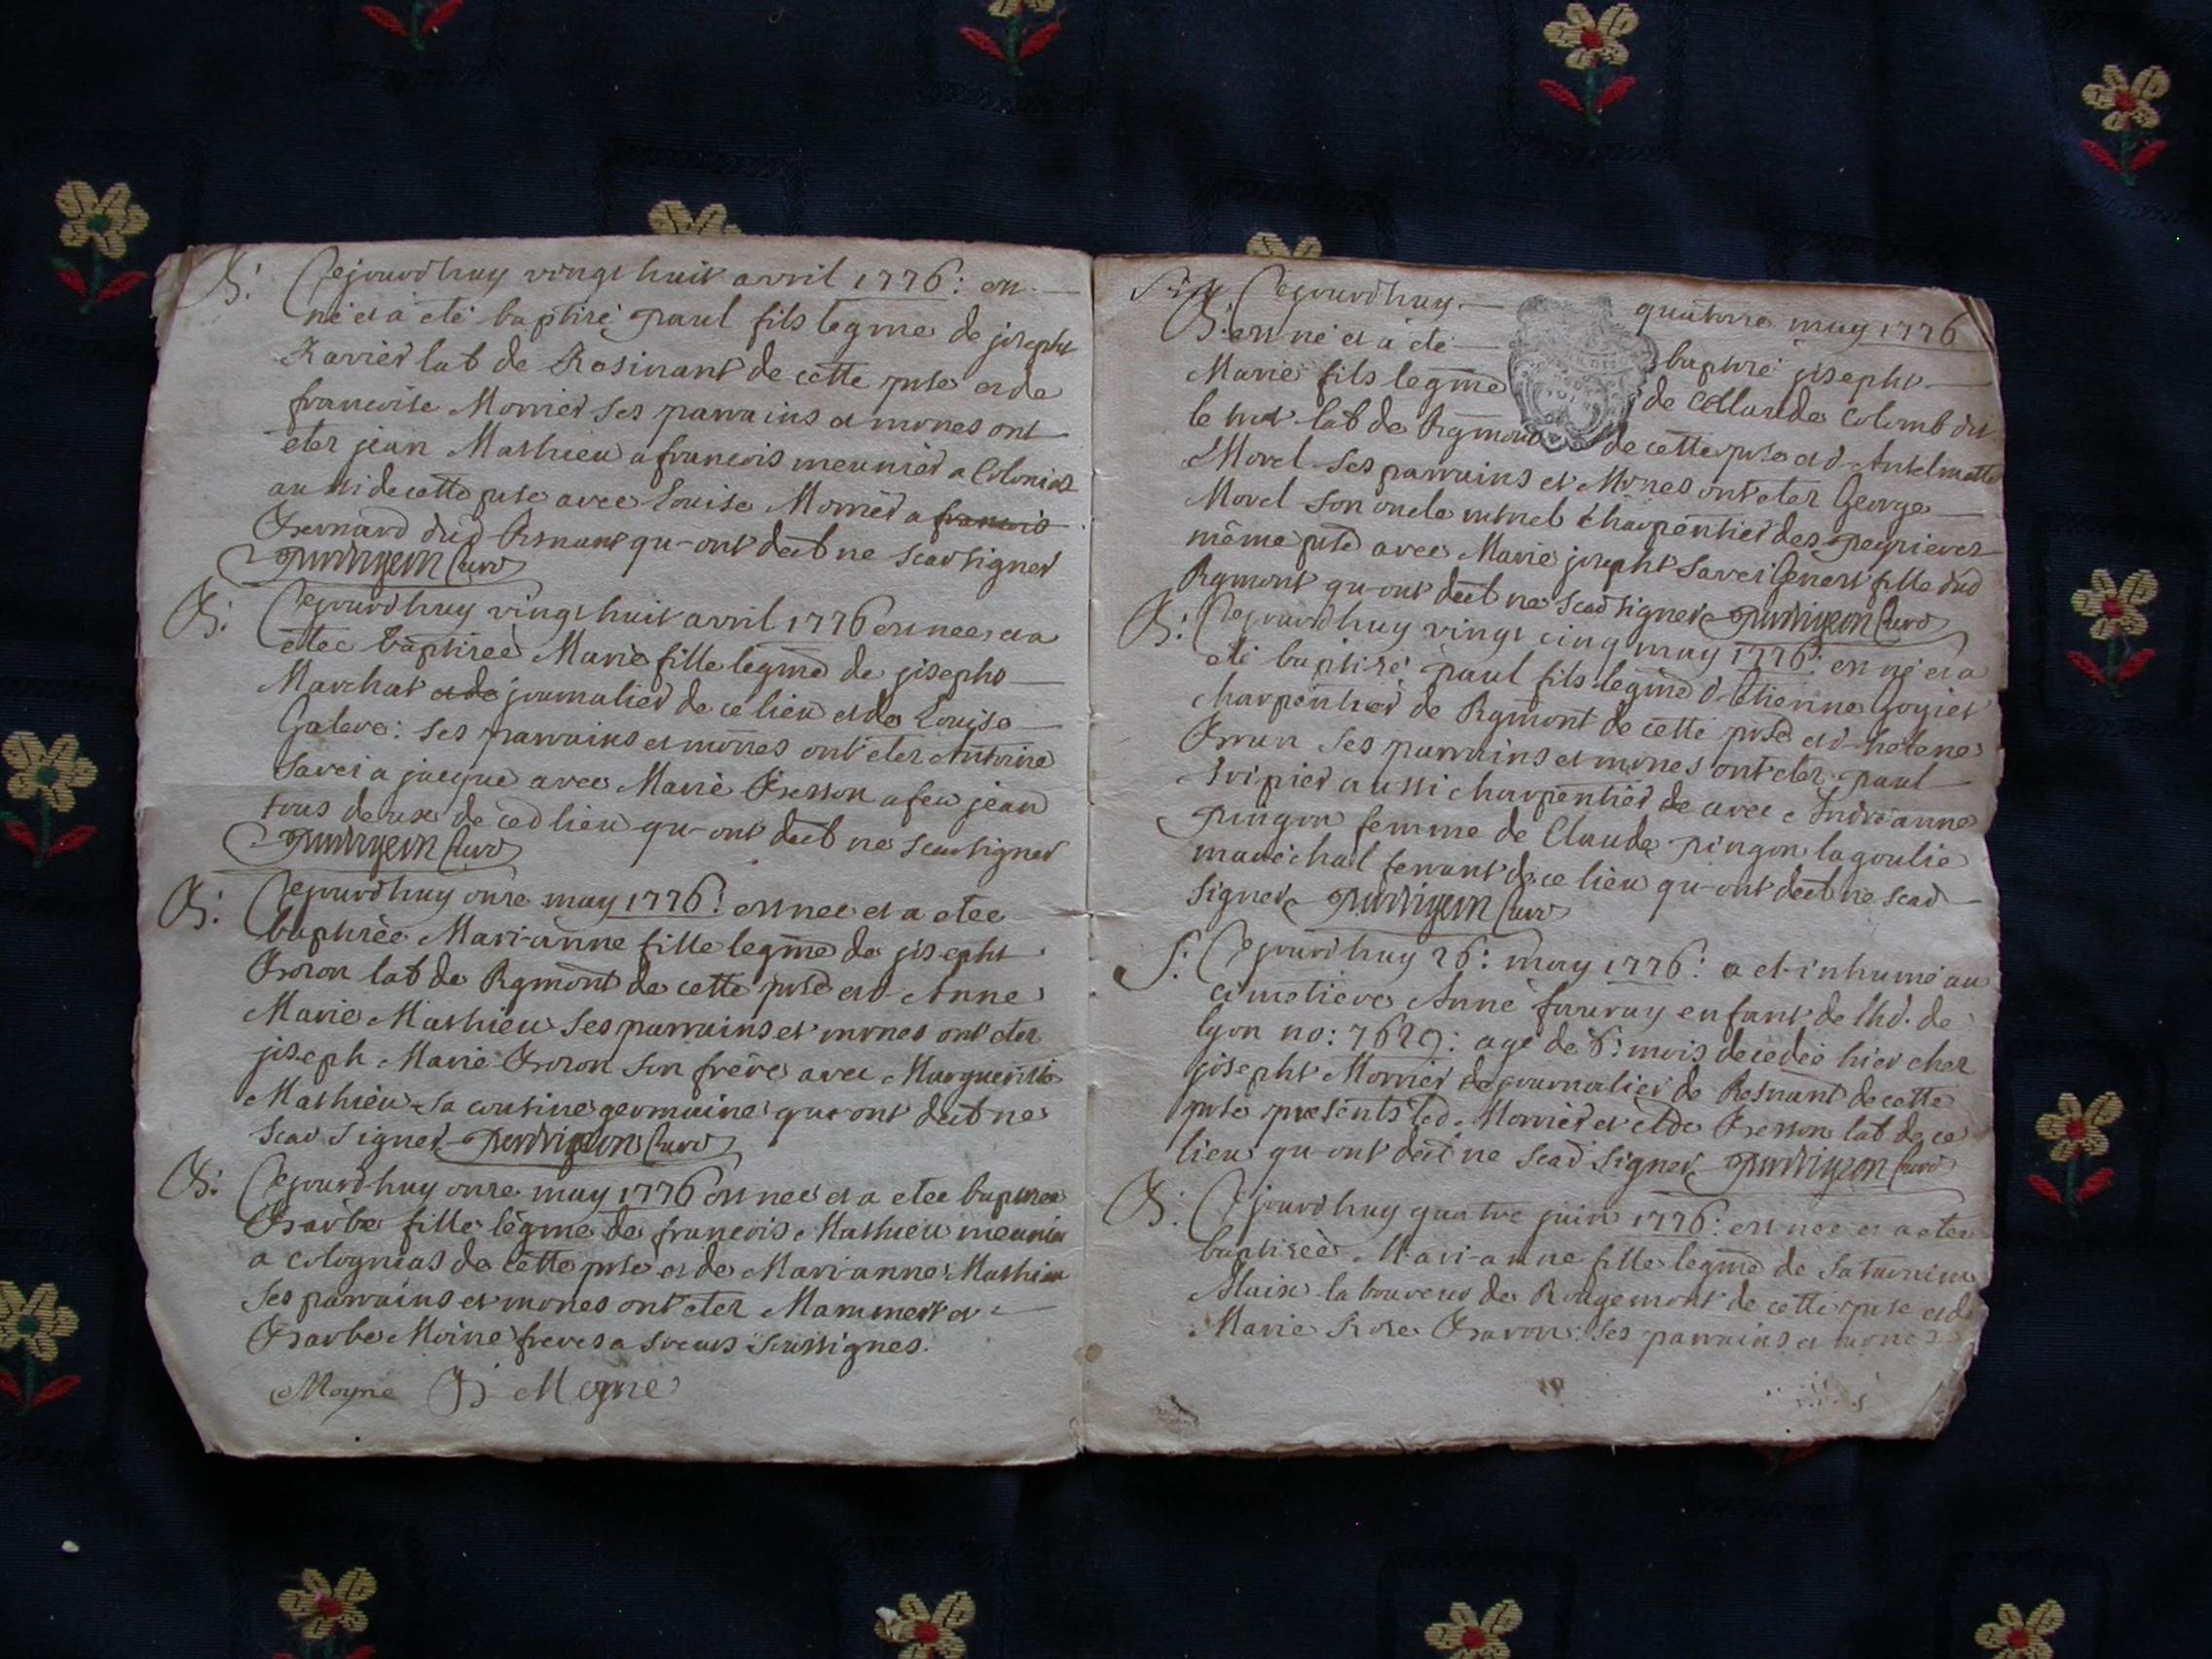 B: Cejourdhuy vingt huit avril 1776: est
né et a été baptisé paul fils legme de josepht
Xavier lab de Rosinant de cette pse et de
francoise Morrier ses parrains et mrnes ont
eter jean Mathieu a francois meunier a Colonias
aussi de cette pse avec Louise Morrier a francois
Bernard dud Rsnant qu-ont declt ne scav signer
perdrigeon Curé
B: Cejourdhuy vingt huit avril 1776 est nee et a
etee baptisee Marie fille legme de josepht
Marchat et de journalier de ce lieu et de Louise
Galere: ses parrains et mrnes ont eter Antoine
Savei a jacque avec Marie Bresson a feu jean
tous deux de ced lieu qu-ont declt ne scav signer
perdrigeon Curé
B: Cejourdhuy onze may 1776: est nee et a etee
baptisée Mari-anne fille legme de josepht
Boron lab de Rgmont de cette pse et d- Anne
Marie Mathieu ses parrains et mrnes ont eter
joseph Marie Boron son frère avec Margueritte
Mathieu sa cousine germaine qui ont declt ne
scav signer perdrigeon Curé
B: Cejourdhuy onze may 1776 est nee et a etee baptisee
Barbe fille légme de francois Mathieu meunier
a Colognias de cette pse et de Mari-anne Mathieu
ses parrains et mrnes ont eter Mammert et
Barbe Moine freres a soeurs soussignes.
Moyne B Moyne
Cejourdhuy quatorze may 1776
B: est né et a été baptisé josepht
Marie fils legme de Claude Colomb dit
le lab de Rgmont de cette pse et d- Antelmette
Morel ses parrains et Mrnes ont eter George
Morel son oncle mtnel Charpentier des peyrieres
même pse avec Marie josepht Savei fille dud
Rgmont qu-ont declt ne scav signer perdrigeon Curé
B: Cejourdhuy vingt cinq may 1776: est né et a
été baptisé paul fils legme d- Etienne Goyiet
charpentier de Rgmont de cette pse et d- helene
Brun ses parrains et mrnes ont eter paul
aussi charpentier de avec Andréanne
pingon femme de Claude pingon lagoulie
maréchal ferrant de ce lieu qu-ont declt ne scav
signer perdrigeon Curé
S: Cejourdhuy 26: may 1776: a et-inhumé au
cimetiere Anne enfant de lhd. de
lyon no: 7629: agé de 6: mois decedée hier chez
josepht Morrier de journalier de Rosnant de cette
pse presents led. Morrier et Cde Bresson lab de ce
lieu qu-ont declt ne scav signer perdrigeon Curé
B: Cejourdhuy quatre juin 1776: est nee et a etee
baptisée Mari-anne fille legme de Saturnin
Aluix laboureur de Rougemont de cette pse et de
Marie Rose Baron: ses parrains et mrnes